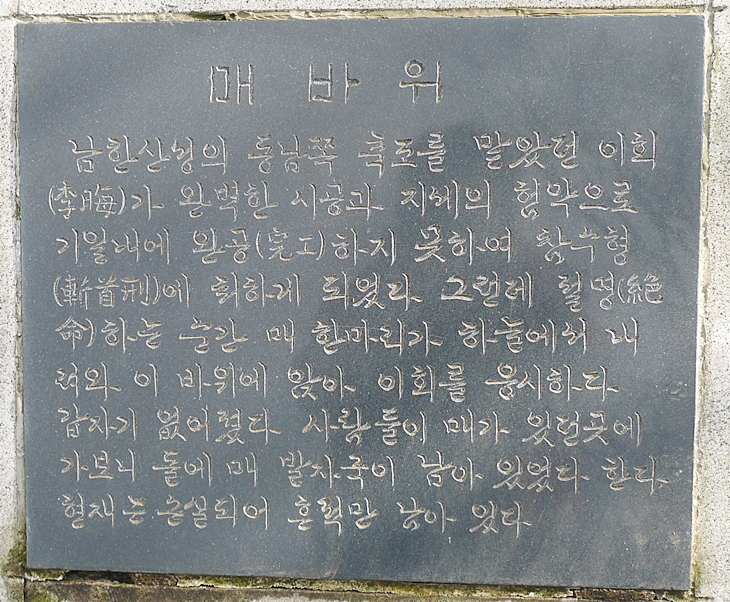 매 바 위
남한산성의 동남쪽 축조를 맡았던 이회
(李晦)가 완벽한 시공과 지세의 험악으로
기일내에 완공(完工)하지 못하여 참수형
(斬首刑)에 처하게 되었다 그런데 절명(絶
命)하는 순간 매 한마리가 하늘에서 내
려와 이 바위에 앉아 이회를 응시하다
갑자기 없어졌다 사람들이 매가 있던곳에
가보니 돌에 매 발자국이 남아 있었다 한다
현재는 손실되어 흔적만 남아 있다